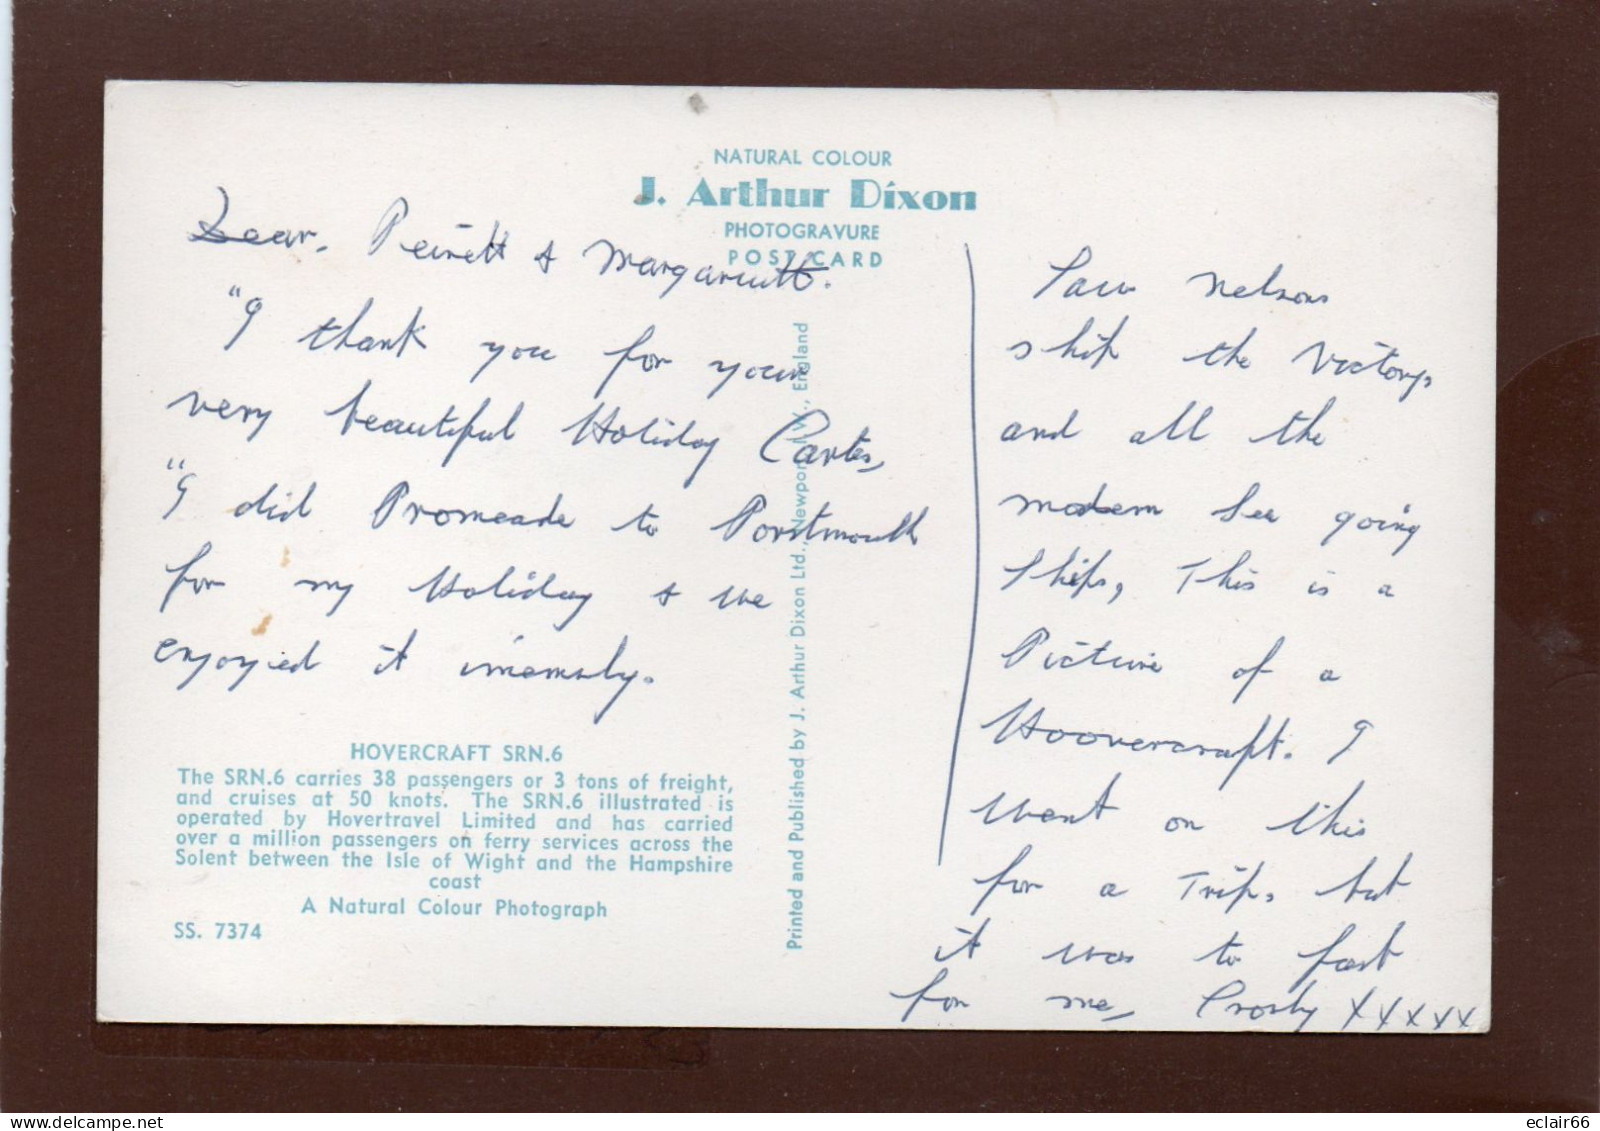 NATURAL COLOUR
J. Arthur Dixon
PHOTOGRAVURE
POST CARD
Dear. &
"I thank you for your
very beautiful Holiday Cartes,
"I did Promeade to Portsmouth
for my Holiday & we
enjoyied it imemsly.
HOVERCRAFT SRN.6
The SRN.6 carries 38 passengers or 3 tons of freight,
and cruises at 50 knots. The SRN.6 illustrated is
operated by Hovertravel Limited and has carried
over a million passengers on ferry services across the
Solent between the Isle of Wight and the Hampshire
coast
A Natural Colour Photograph
SS. 7374
Printed and Published by J. Arthur Dixon Ltd., Newport, I.W., England
Saw Nelsons
ship the Victory,
and all the
modern Sea going
Ships, This is a
Picture of a
Hoovercraft. I
went on this
for a Trip, but
it was to fast
for me, Crosby XXXXX
eclair66
delcampe.net